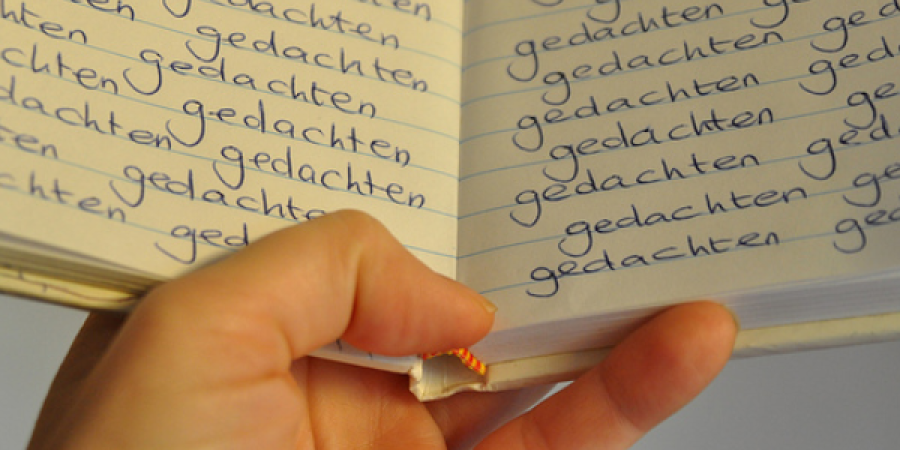 ten
gedachten
en gedachten
hten gedachten
chten gedachten
dachten gedachten
en gedachte
chten ged
gedachten g
gedachten ge
gedachten ged
gedachten ge
gedachten ged
gedachten ge
gedachten ged